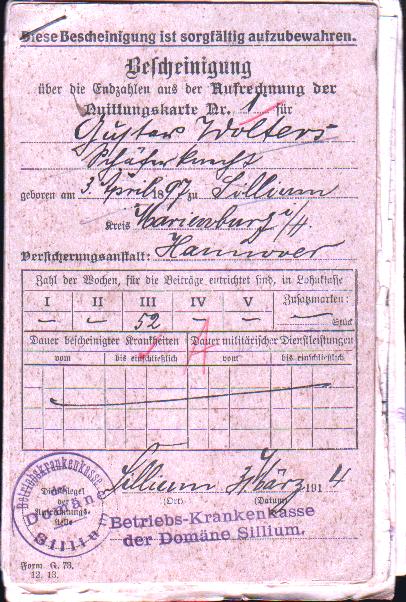 Diese Bescheinigung ist sorgfältig aufzubewahren.
Bescheinigung
über die Endzahlen aus der Aufrechnung der
Quittungskarte Nr. 1 für
Gustav Wolters
Schäferknecht
geboren am 3. April 1897 zu Sillium
Kreis Marienburg i/H.
Versicherungsanstalt: Hannover
Zahl der Wochen, für die Beiträge entrichtet sind, in Lohnklasse
I II III IV V Zusatzmarken:
— — 52 — — — Stück
Dauer bescheinigter Krankheiten Dauer militärischer Dienstleistungen
vom bis einschließlich vom bis einschließlich
Sillium März 1914
(Ort) (Datum)
Dienstsiegel
der
Aufrechnungs-
stelle
Betriebskrankenkasse
der
Domäne
Sillium
Betriebs-Krankenkasse
der Domäne Sillium.
Form G. 73.
12. 13.